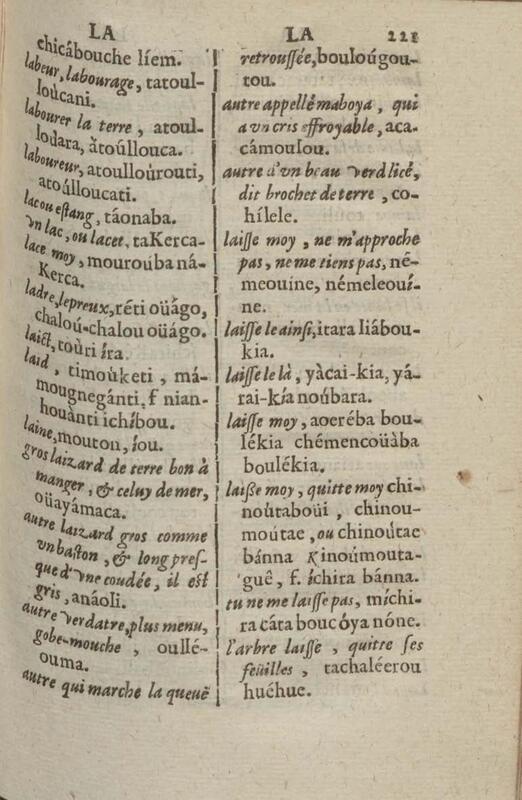 LA
chicâbouche líem.
labeur, labourage, tatoul-
loucani.
labourer la terre, atoul-
lodara, ätoúllouca.
laboureur, atoulloúrouti,
atoúlloucati.
lac ou eſtang, táonaba.
vn lac, ou lacet, taKerca-
lace moy, mouroúba ná-
Kerca.
ladre, lepreux, réti oüágo,
chaloú-chalou oüágo.
laict, toùri íra.
laid, timoùketi, má-
mougnegánti, f nian-
houànti ichíbou.
laine, mouton, íou.
gros laizard de terre bon à
manger, & celuy de mer,
oüayámaca.
autre laizard gros comme
vn baſton, & long preſ-
que d'vne coudée, il eſt
gris, anáoli.
autre verdatre, plus menu,
gobe-mouche, oullé-
ouma.
autre qui marche la queuë
LA 221
retrouſſée, bouloúgou-
tou.
autre appellé maboya, qui
a vn cris effroyable, aca-
cámoulou.
autre d'vn beau verd licé,
dit brochet de terre, co-
hílele.
laiſſe moy, ne m'approche
pas, ne me tiens pas, né-
meouine, némeleouí-
ne.
laiſſe le ainſi, itara liábou-
kia.
laiſſe le là, yàcai-kia, yá-
rai-kía noúbara.
laiſſe moy, aoeréba bou-
lékia chémencoüàba
boulékia.
laiße moy, quitte moy chi-
noútaboüi, chinou-
moútae, ou chinoútae
bánna Kinoúmouta-
guê, f. íchira bánna.
tu ne me laiſſe pas, míchi-
ra cáta bouc óya nóne.
l'arbre laiſſe, quitte ſes
feüilles, tachaléerou
huéhue.